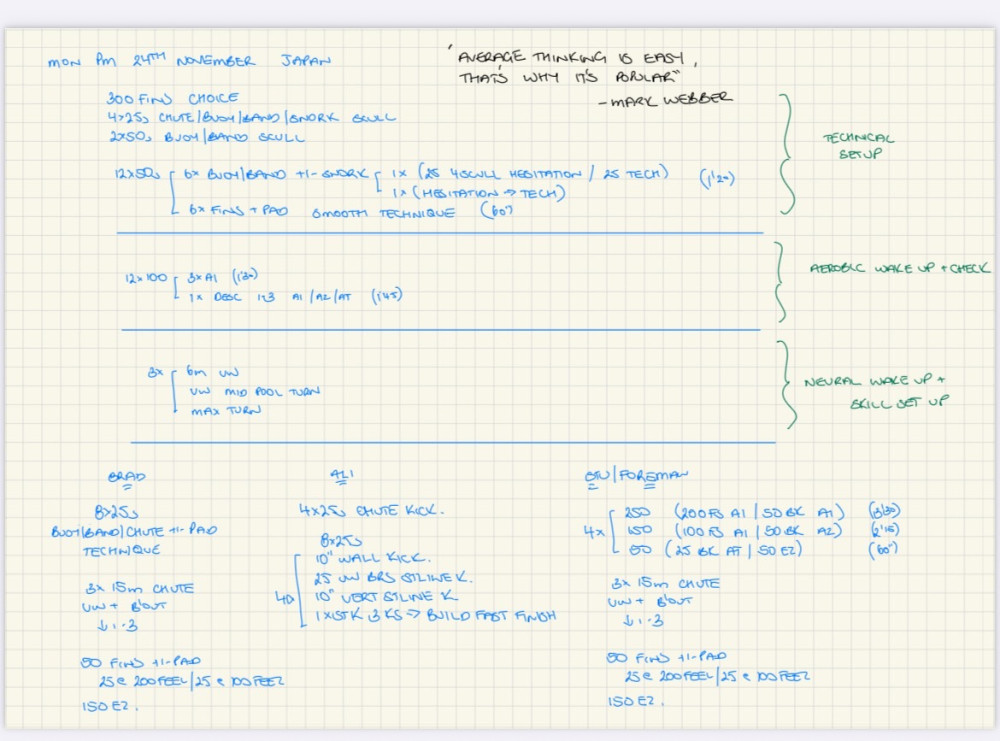 MON PM 24TH NOVEMBER JAPAN
"AVERAGE THINKING IS EASY,
THAT'S WHY IT'S POPULAR"
- MARK WEBBER
300 FINS CHOICE
4x25s CHUTE/BUOY/BAND/SNORK SCULL
2x50s BUOY/BAND SCULL
TECHNICAL
SETUP
12x50s 6x BUOY/BAND +/- SNORK 1x (25 4SCULL HESITATION / 25 TECH) (1'20)
1x (HESITATION → TECH)
6x FINS + PAD SMOOTH TECHNIQUE (60")
12x100 3x A1 (1'30)
1x DESC 1-3 A1/A2/AT (1'45)
AEROBIC WAKE UP + CHECK
3x 6m UW
UW MID POOL TURN
MAX TURN
NEURAL WAKE UP +
SKILL SET UP
BRAD
8x25s
BUOY/BAND/CHUTE +/- PAD
TECHNIQUE
3x 15m CHUTE
UW + B'OUT
↓1-3
50 FINS +/- PAD
25 @ 200 FEEL/25 @ 100 FEEL
150 EZ.
ALI
4x25s CHUTE KICK.
8x25s
10" WALL KICK.
25 UW BRS STLINE K.
40 10" VERT STLINE K
1x1STK 3KS → BUILD FAST FINISH
/FOREMAN
4x 250 (200FS A1/50 BK A1) (3'30)
150 (100 FS A1/50 BK A2) (2'15)
50 (25 BK AT/50 EZ) (60")
3x 15m CHUTE
UW + B'OUT
↓1-3
50 FINS +/- PAD
25 @ 200 FEEL/25 @ 100 FEEL
150 EZ.